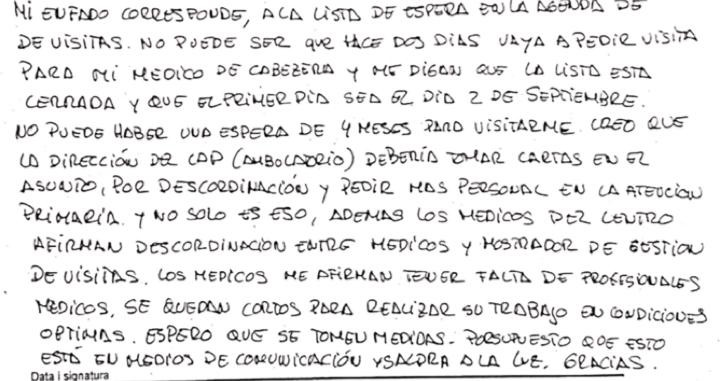 MI ENFADO CORRESPONDE, A LA LISTA DE ESPERA EN LA AGENDA DE
DE VISITAS. NO PUEDE SER QUE HACE DOS DIAS VAYA A PEDIR VISITA
PARA MI MEDICO DE CABEZERA Y ME DIGAN QUE LA LISTA ESTA
CERRADA Y QUE EL PRIMER DIA SEA EL DIA 2 DE SEPTIEMBRE.
NO PUEDE HABER UNA ESPERA DE 4 MESES PARA VISITARME. CREO QUE
LA DIRECCIÓN DEL CAP (AMBOLATORIO) DEBERÍA TOMAR CARTAS EN EL
ASUNTO, POR DESCORDINACIÓN Y PEDIR MAS PERSONAL EN LA ATENCION
PRIMARIA. Y NO SOLO ES ESO, ADEMAS LOS MEDICOS DEL CENTRO
AFIRMAN DESCORDINACION ENTRE MEDICOS Y MOSTRADOR DE GESTION
DE VISITAS. LOS MEDICOS ME AFIRMAN TENER FALTA DE PROFESIONALES
MEDICOS, SE QUEDAN CORTOS PARA REALIZAR SU TRABAJO EN CONDICIONES
OPTIMAS. ESPERO QUE SE TOMEN MEDIDAS. PORSUPUESTO QUE ESTO
ESTÁ EN MEDIOS DE COMUNICACIÓN Y SALDRA A LA LUZ. GRACIAS.
Data i signatura